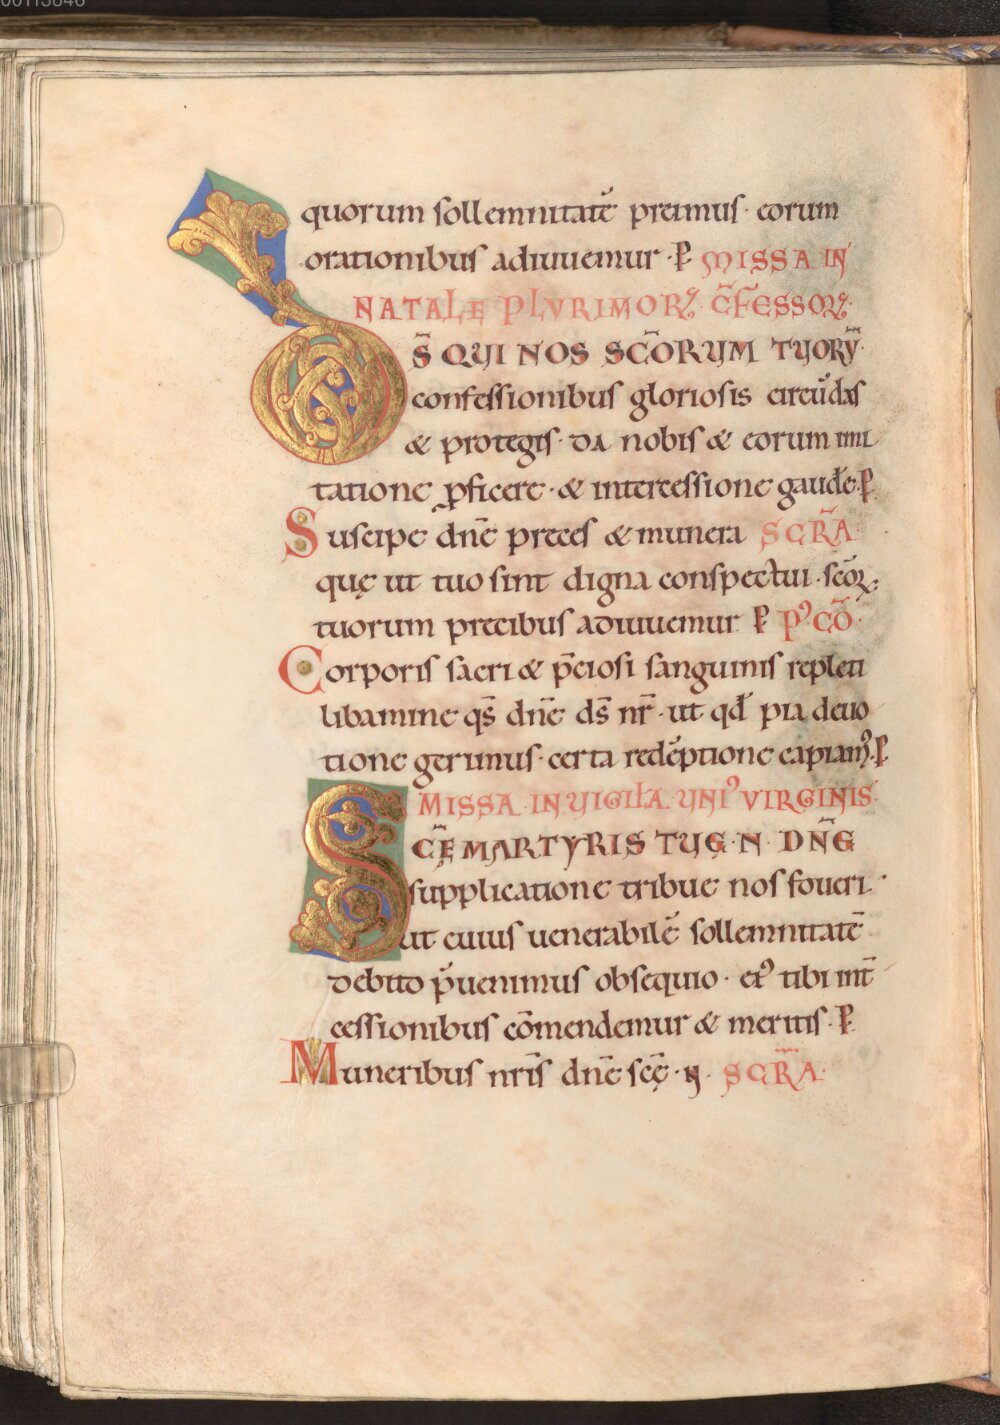 quorum sollemnitatē preimus· eorum
orationibus adiuuemur· P MISSA IN
NATALE PLVRIMORꝜ C̄FESSOꝜ·
DS̄ QUI NOS SC̄ORUM TUORŪ
confessionibus gloriosis circūdas
& protegis· da nobis & eorum imi
tatione ꝓficere· & intercessione gaudere· P
Suscipe dn̄e preces & munera SECR̄A
quę ut tuo sint digna conspectui· sc̄oꝝ·
tuorum precibus adiuuemur P PꝰCŌ
Corporis sacri & p̄ciosi sanguinis repleti
libamine qs̄ dn̄e ds̄ nr̄· ut qd̄ pia deuo
tione gerimus· certa redēptione capiamꝰ· P
MISSA IN UIGILIA UNIꝰ VIRGINIS
SC̄Ę MARTYRIS TUĘ· N· DN̄E
supplicatione tribue nos foueri·
ut cuius uenerabilē sollemnitatē
debito p̄uenimus obsequio· eiꝰ tibi int̄
cessionibus cōmendemur & meritis· P
Muneribus nr̄is dn̄e sc̄ę· N· SECR̄A·